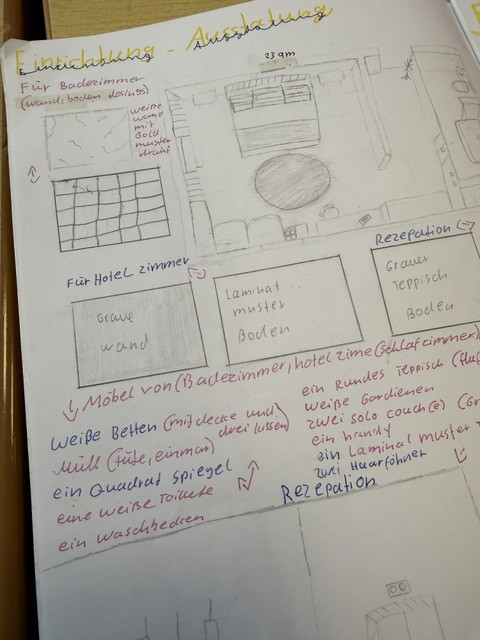 Einrichtung - Ausstattung
Für Badezimmer
(wand, boden designs)
weiße
wand
mit
Gold
muster
drauf
23 qm
Rezepation
Für Hotel zimmer
Graue
wand
Laminat
muster
Boden
Grauer
Teppisch
Boden
Möbel von (Badezimmer, hotel zime (schlafzimmer)
weiße Betten (mit decke und
drei kissen)
Müll (tüte, einmar)
ein Quadrat Spiegel
eine weiße Toilette
ein waschbecken
ein Rundes Teppisch
weiße Gardienen
zwei solo couch(e)
ein handy
ein Laminat muster
zwei Haarföhner
Rezepation